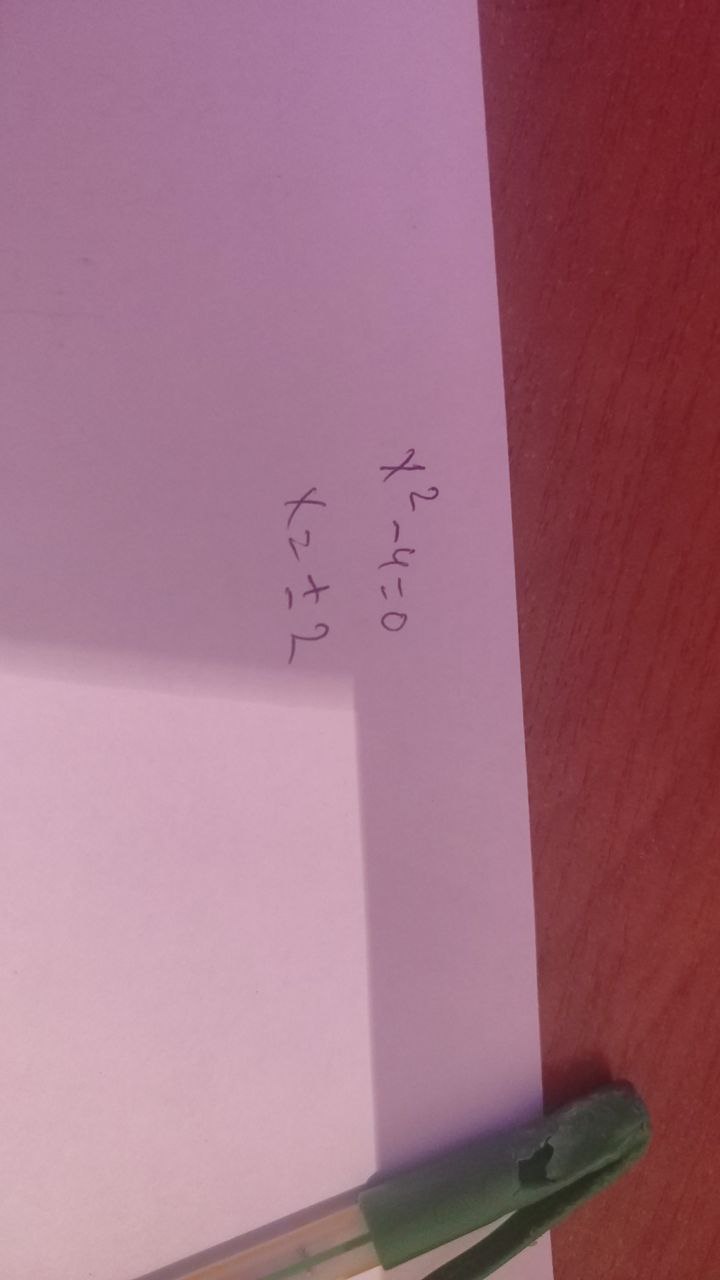 x² - 4 = 0
x = ± 2